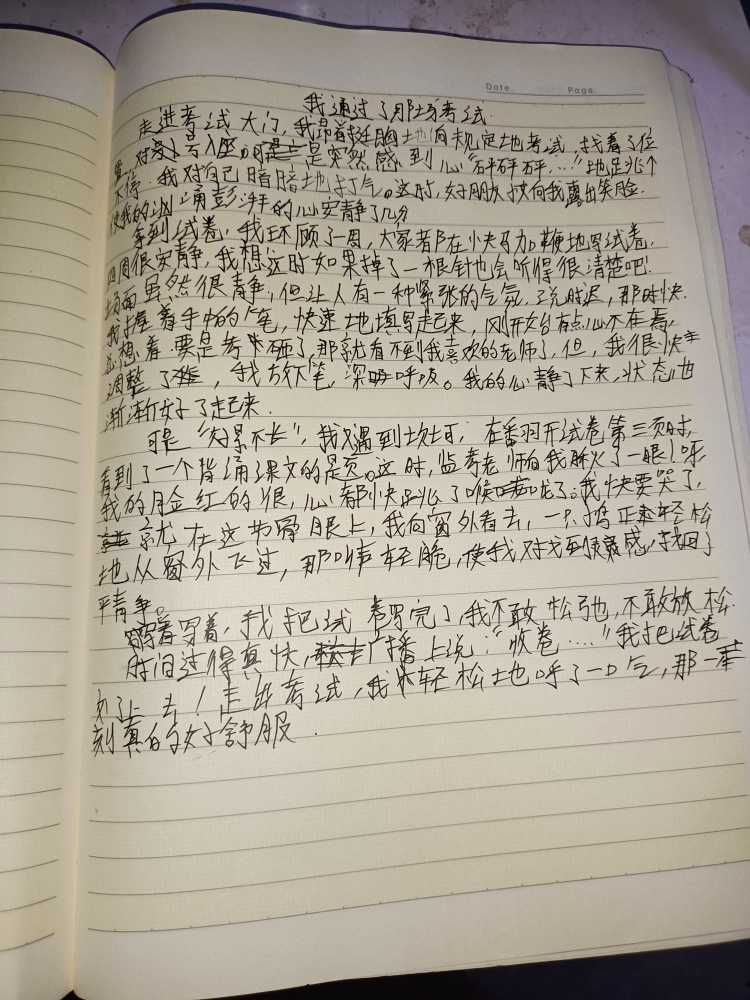 Date. Page.
我通过了那场考试.
走进考试大门,我昂首挺胸地向规定地考试,找着了位
置,对号入座,可是突然感到心"砰砰砰……"地跳个
不停.我对自己暗暗地打气。这时,好朋友向我露出笑脸.
使我的汹涌彭湃的心安静了几分
拿到试卷,我环顾了一周,大家都在快马加鞭地写试卷.
四周很安静,我想这时如果掉了一根针也会听得很清楚吧!
场面虽然很静,但让人有一种紧张的气氛.说时迟,那时快.
我握着手中的笔,快速地填写起来,刚开始有点心不在焉,
总想着要是考砸了,那就看不到我喜欢的老师了,但,我很快
调整了,我放下笔,深呼吸。我的心静了下来,状态也
渐渐好了起来.
可是"好景不长",我又遇到坎坷,在翻开试卷第三页时,
看到了一个背诵课文的是页。这时,监考老师向我瞅了一眼,呀
我的脸红的很,心都快跳了喉咙了。我快要哭了,
就在这节骨眼上,我向窗外看去,一只鸟正轻松
地从窗外飞过,那叫声轻脆,使我对找回了
平静。
写着写着,我把试卷写完了,我不敢松弛,不敢放松.
时间过得真快,广播上说:"收卷……"我把试卷
交了上去!走出考试,我轻松地呼了一口气,那一
刻真的好舒服.